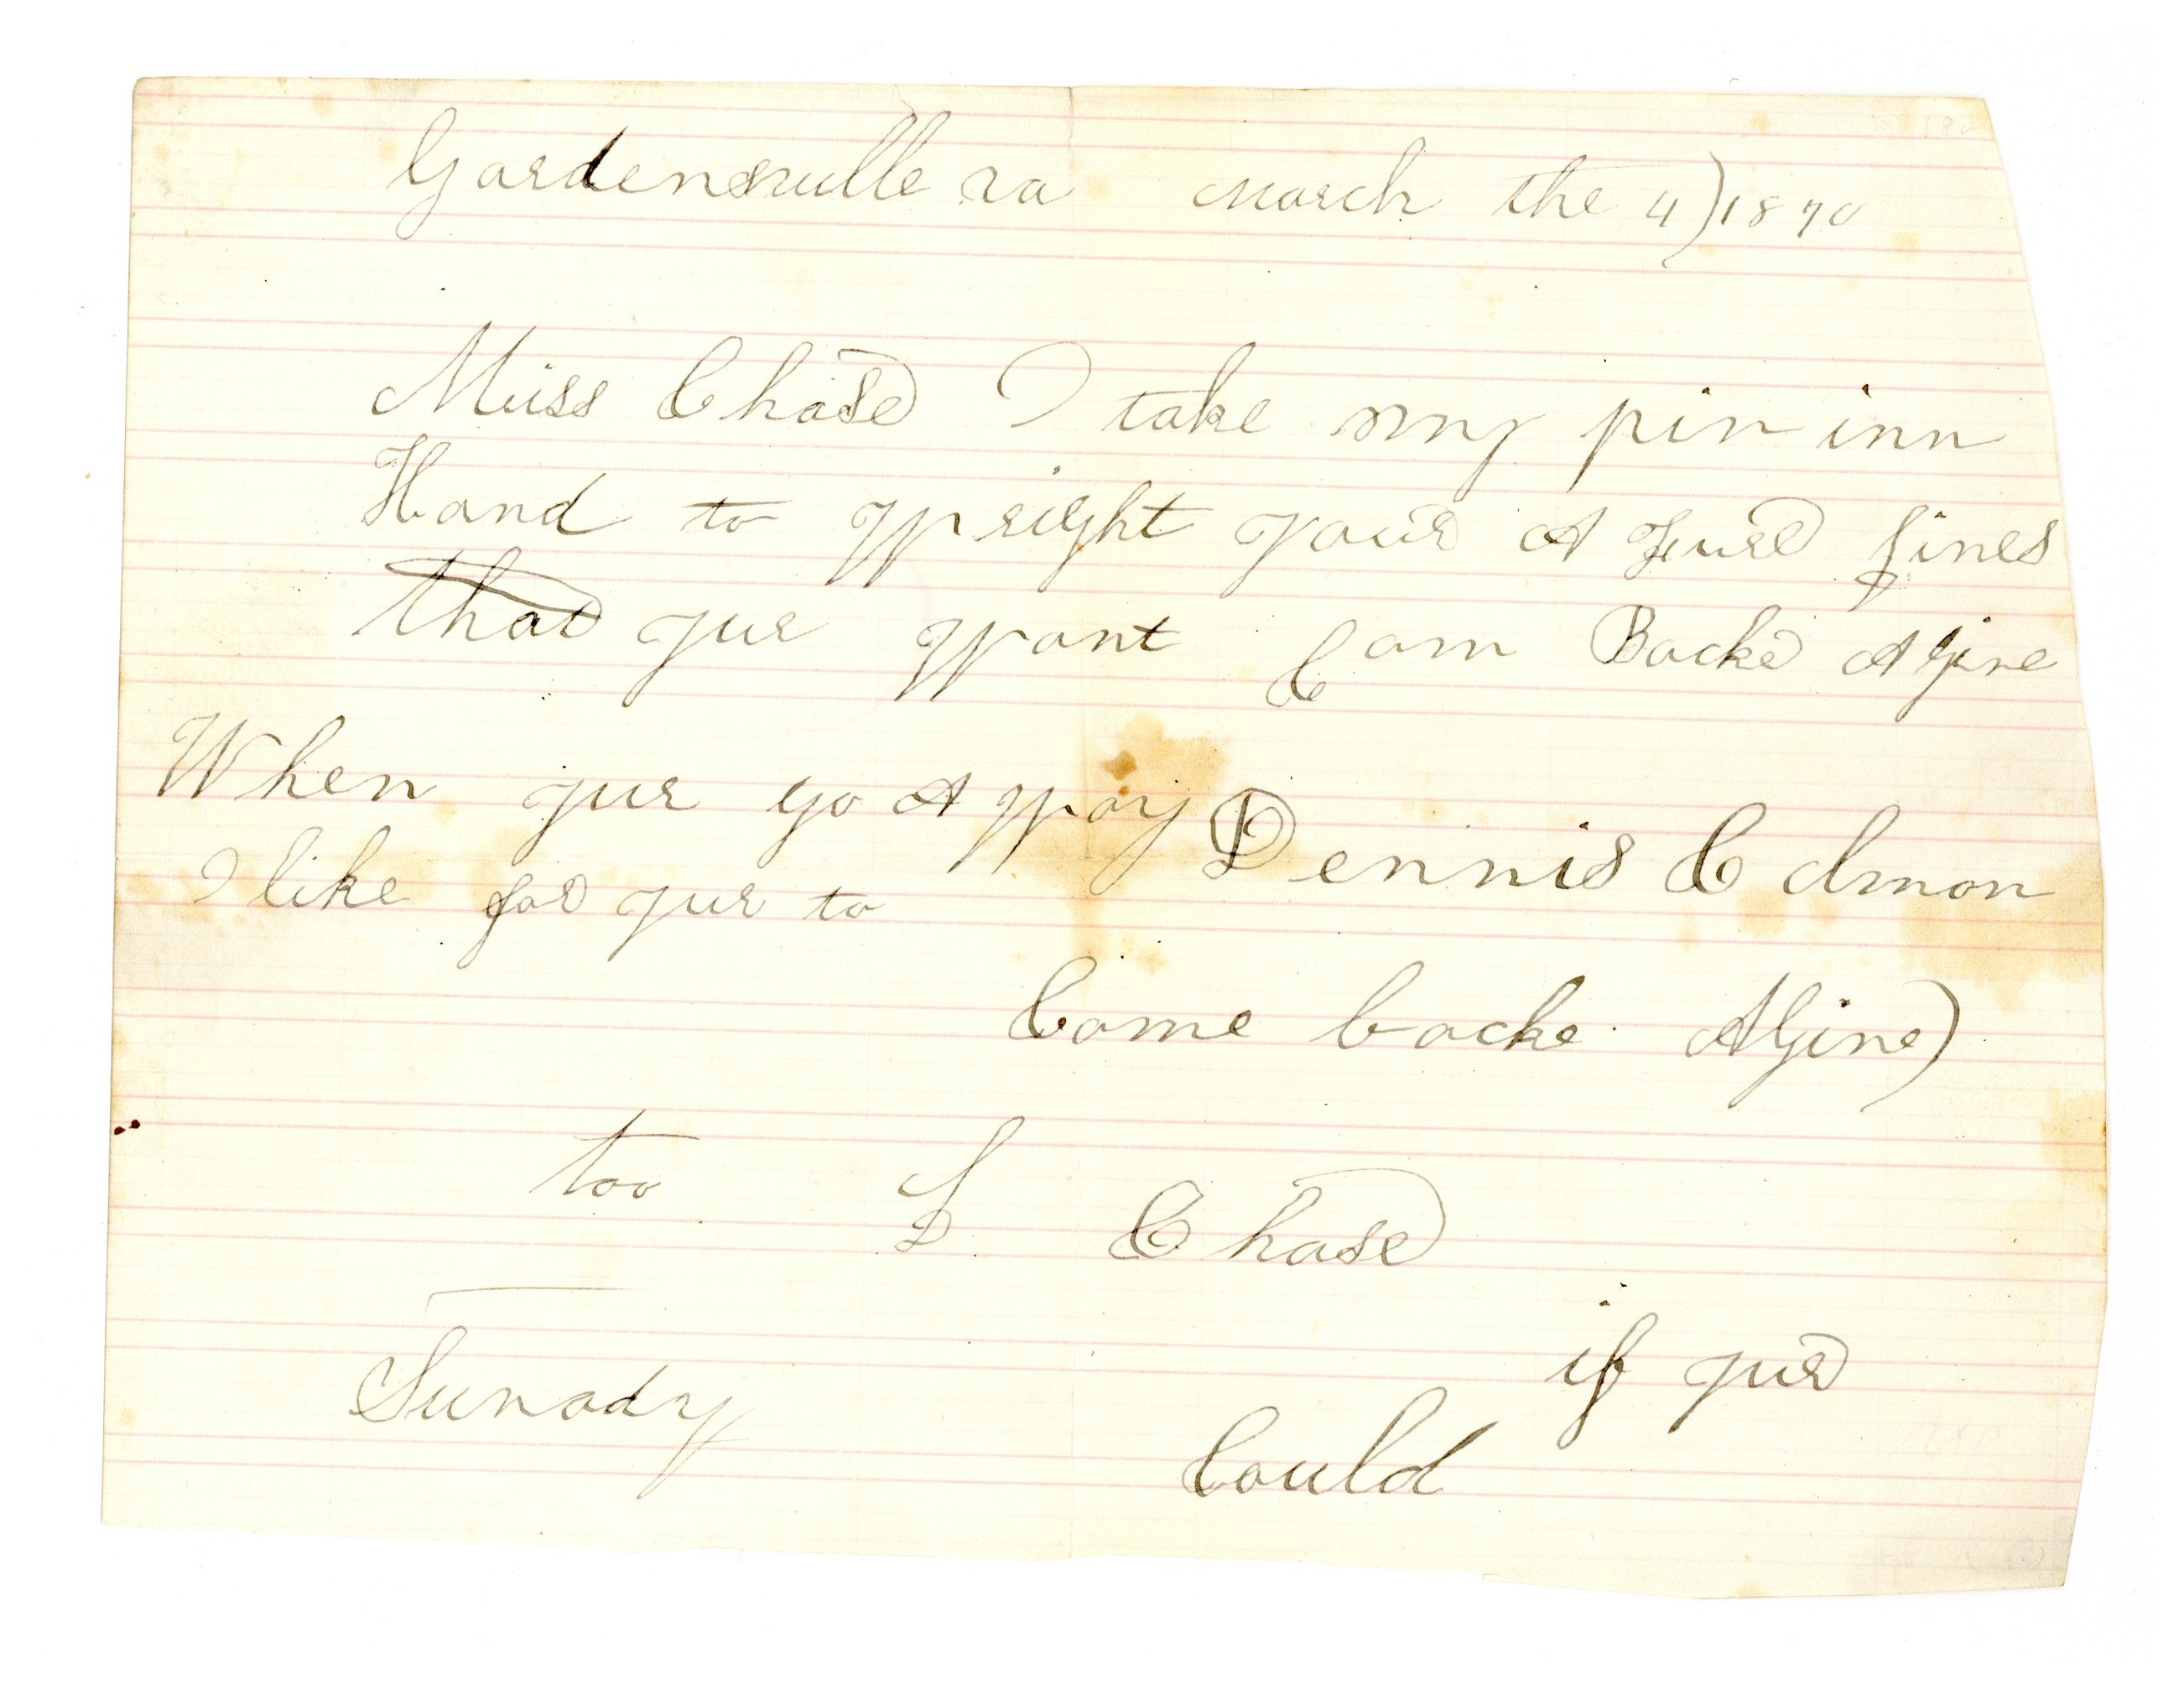 Gardensville va March the 4) 1870
Miss Chase I take my pin inn
Hand to Wright your A fure lines
that yur Want Cam Backe A gine
When yur go A Way
Dennis C
I like for yur to
Come backe A gine)
too L Chase
if yur
Sunady
Could